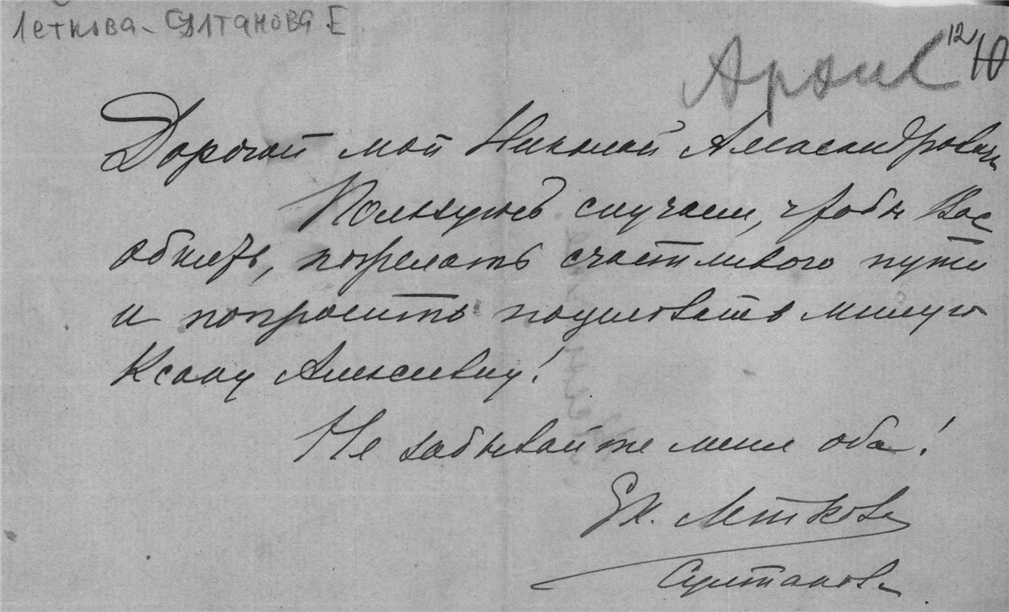 Леткова-Султанова Е
Архив
12
10
Дорогой мой Николай Александрович
Пользуюсь случаем, чтобы Вас
обнять, пожелать счастливого пути
и попросить поцеловать милую
Ксану Алексеевну!
Не забывайте меня оба!
Ек. Леткова
Султанова